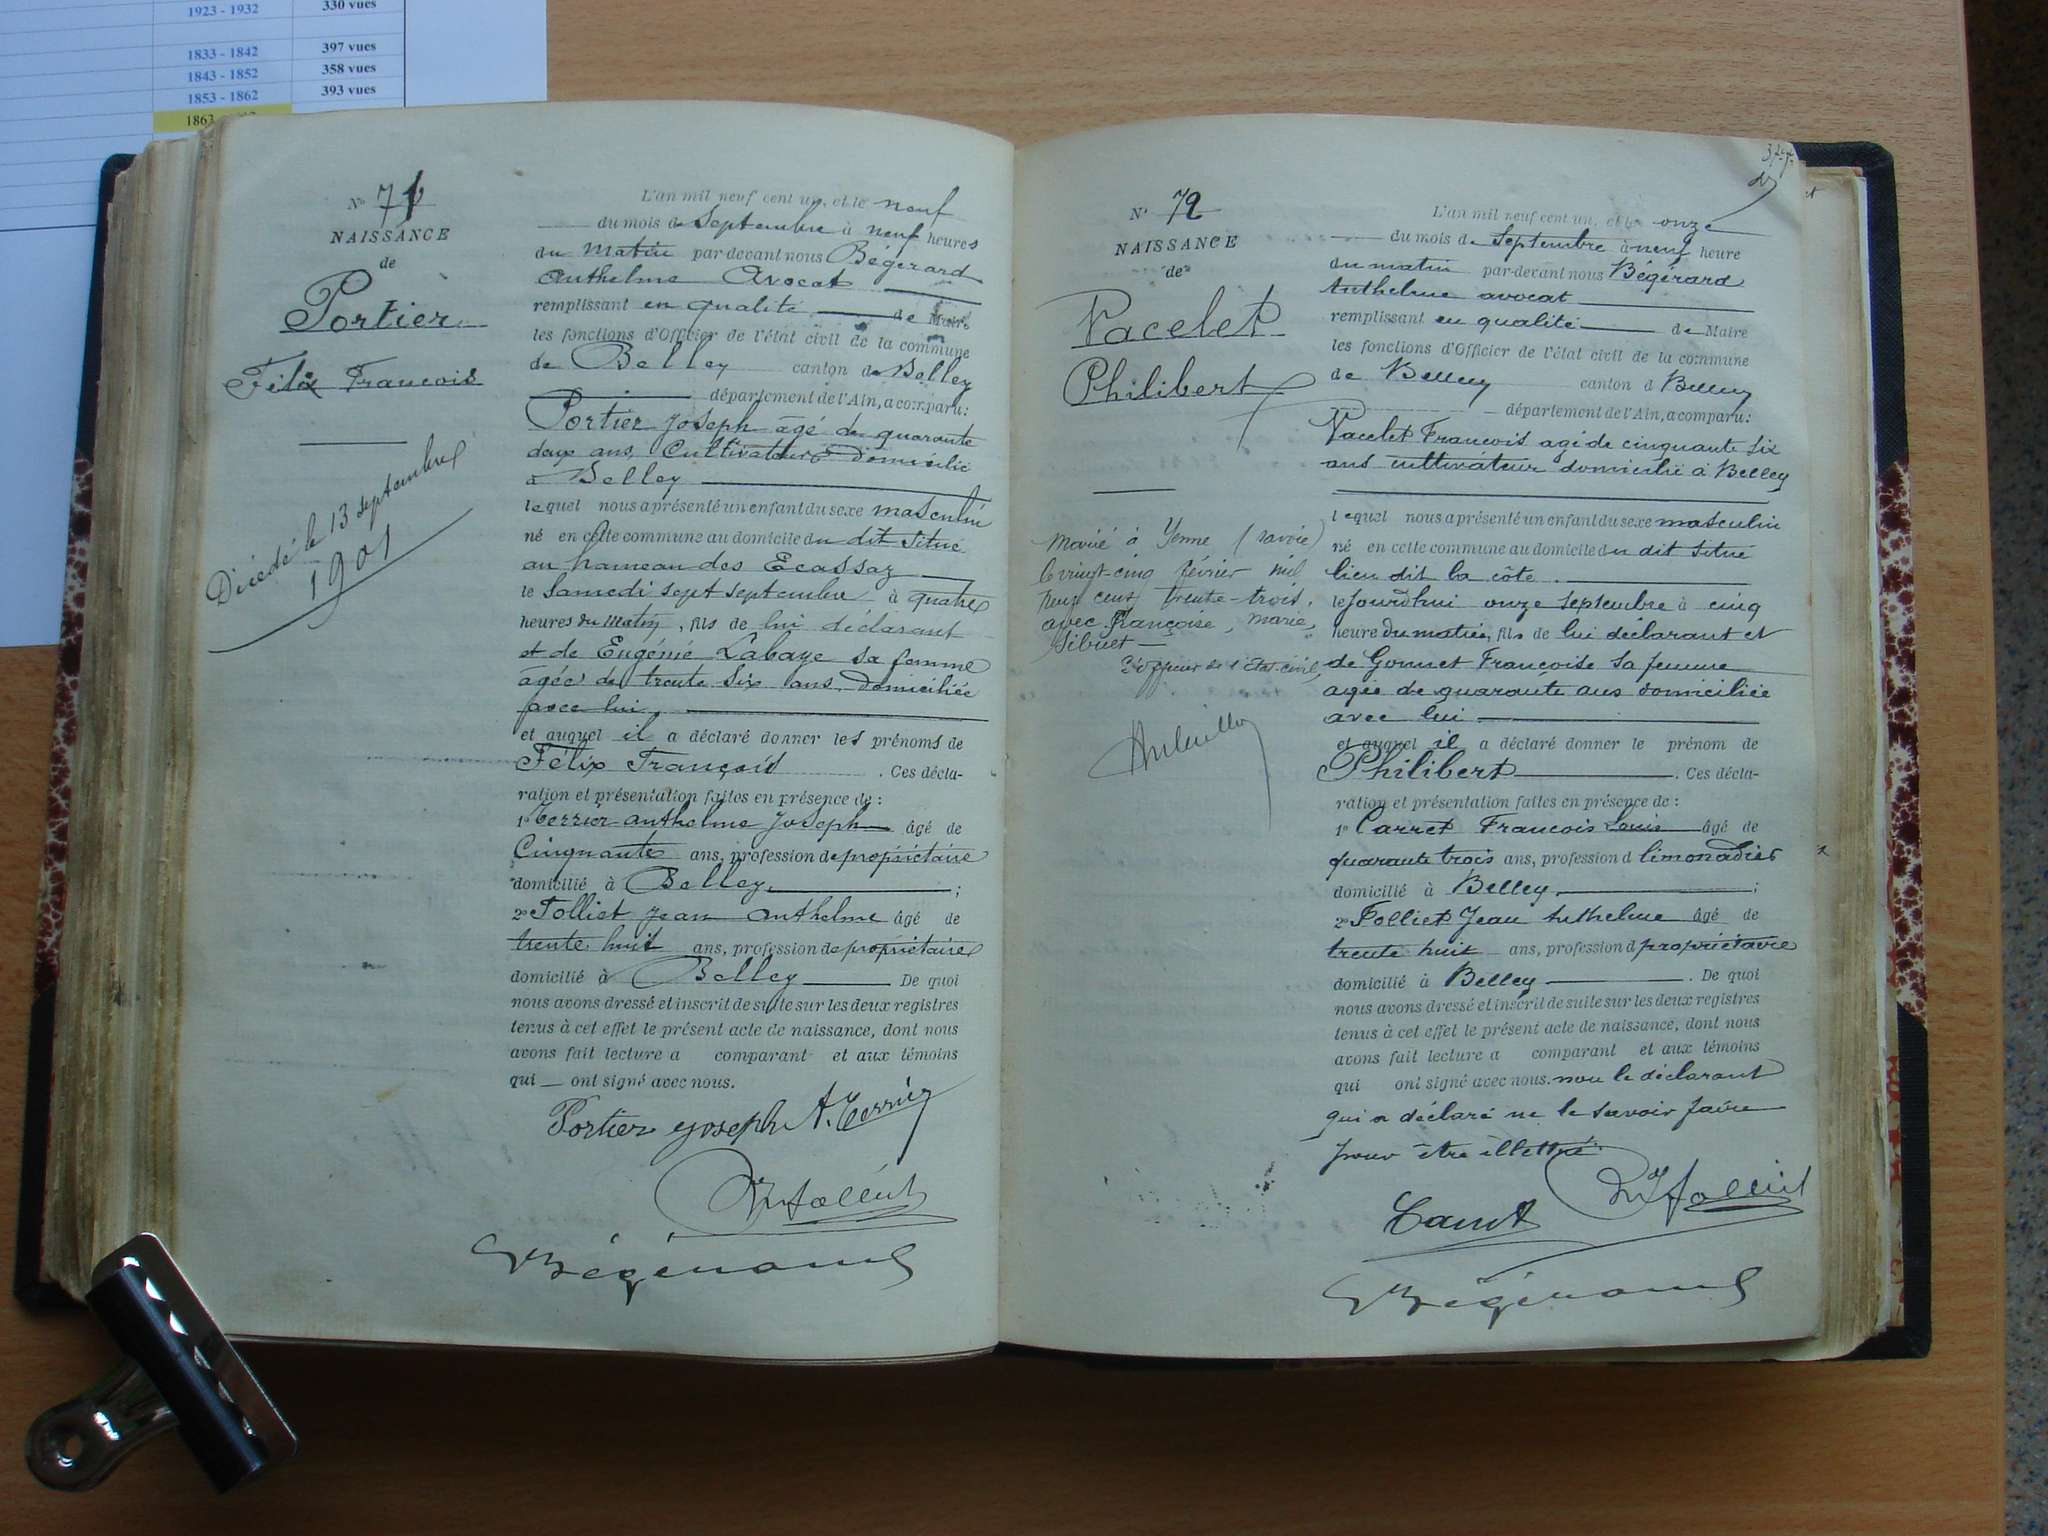 1923 - 1932 330 vues
1833 - 1842 397 vues
1843 - 1852 358 vues
1853 - 1862 393 vues
1863
No 71
NAISSANCE
de
Portier
Félix François
Décédé le 13 septembre
1901
L'an mil neuf cent un, et le neuf
du mois de septembre à neuf heures
du matin par-devant nous Bégérard
Anthelme Avocat
remplissant en qualité de Maire
les fonctions d'Officier de l'état civil de la commune
de Belley canton de Belley
département de l'Ain, a comparu:
Portier Joseph âgé de quarante
deux ans, Cultivateur domicilié
à Belley
lequel nous a présenté un enfant du sexe masculin
né en cette commune au domicile du dit situé
au hameau des Ecassaz
le samedi sept septembre à quatre
heures du matin, fils de lui déclarant
et de Eugénie Labaye sa femme
âgée de trente six ans domiciliée
avec lui
et auquel il a déclaré donner les prénoms de
Félix François . Ces décla-
ration et présentation faites en présence de :
1o Terrier anthelme Joseph âgé de
Cinquante ans, profession de propriétaire
domicilié à Belley ;
2o Folliet Jean Anthelme âgé de
trente huit ans, profession de propriétaire
domicilié à Belley De quoi
nous avons dressé et inscrit de suite sur les deux registres
tenus à cet effet le présent acte de naissance, dont nous
avons fait lecture a comparant et aux témoins
qui ont signé avec nous.
Portier Joseph A. Terrier
Folliet
Bégérard
No 72
NAISSANCE
de
Vacelet
Philibert
Marié à Yenne (Savoie)
le vingt-cinq février mil
neuf cent trente-trois,
avec Françoise, Marie,
Sibuet
L'officier de l'état-civil,
L'an mil neuf cent un, et le onze
du mois de septembre à neuf heure
du matin par-devant nous Bégérard
Anthelme avocat
remplissant en qualité de Maire
les fonctions d'Officier de l'état civil de la commune
de Belley canton d Belley
département de l'Ain, a comparu:
Vacelet François agé de cinquante six
ans cultivateur domicilié à Belley
lequel nous a présenté un enfant du sexe masculin
né en cette commune au domicile du dit situé
lieu dit la côte
le jourd'hui onze septembre à cinq
heure du matin, fils de lui déclarant et
de Gonnet Françoise sa femme
agée de quarante ans domiciliée
avec lui
et auquel il a déclaré donner le prénom de
Philibert . Ces décla-
ration et présentation faites en présence de :
1o Carret François Louis âgé de
quarante trois ans, profession d limonadier
domicilié à Belley ;
2o Folliet Jean Anthelme âgé de
trente huit ans, profession d propriétaire
domicilié à Belley . De quoi
nous avons dressé et inscrit de suite sur les deux registres
tenus à cet effet le présent acte de naissance, dont nous
avons fait lecture a comparant et aux témoins
qui ont signé avec nous. non le déclarant
qui a déclaré ne le savoir faire
pour être illettré
Folliet
Carret
Bégérard